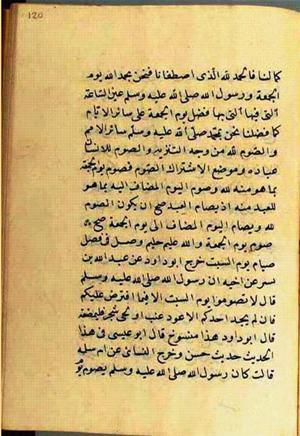 120
كما لنا فالحمد لله الذي اصطفانا فنحن بحمد الله يوم
الجمعة ورسول الله صلى الله عليه وسلم عين الساعة
التي فيها التي بها فضل يوم الجمعة على سائر الايام
كما فضلنا نحن بمحمد صلى الله عليه وسلم سائر الامم
والصوم لله من وجه التنزيه والصوم للانسان
عبادة وموضع الاشتراك الصوم فصوم يوم الجمعة
بما هو منه لله وصوم اليوم المضاف اليه بما هو
للعبد منه اذ بصيام العبد صح ان يكون الصوم
لله وبصيام اليوم المضاف الى يوم الجمعة صح
صوم يوم الجمعة والله عليم حليم وصل في فصل
صيام يوم السبت خرج ابو داود عن عبد الله بن
بسر عن اخيه ان رسول الله صلى الله عليه وسلم
قال لا تصوموا يوم السبت الا فيما افترض عليكم
فان لم يجد احدكم الا عود عنب او لحى شجر فليمضغه
قال ابو داود هذا منسوخ قال ابو عيسى في هذا
الحديث حديث حسن وخرج النسائي عن ام سلمة
قالت كان رسول الله صلى الله عليه وسلم يصوم يوم